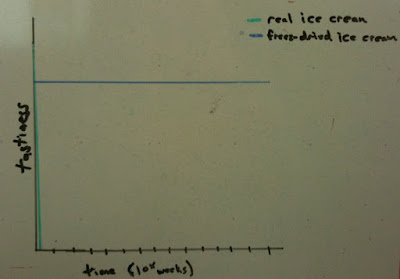 real ice cream
freeze-dried ice cream
tastiness
time (10ˣ weeks)